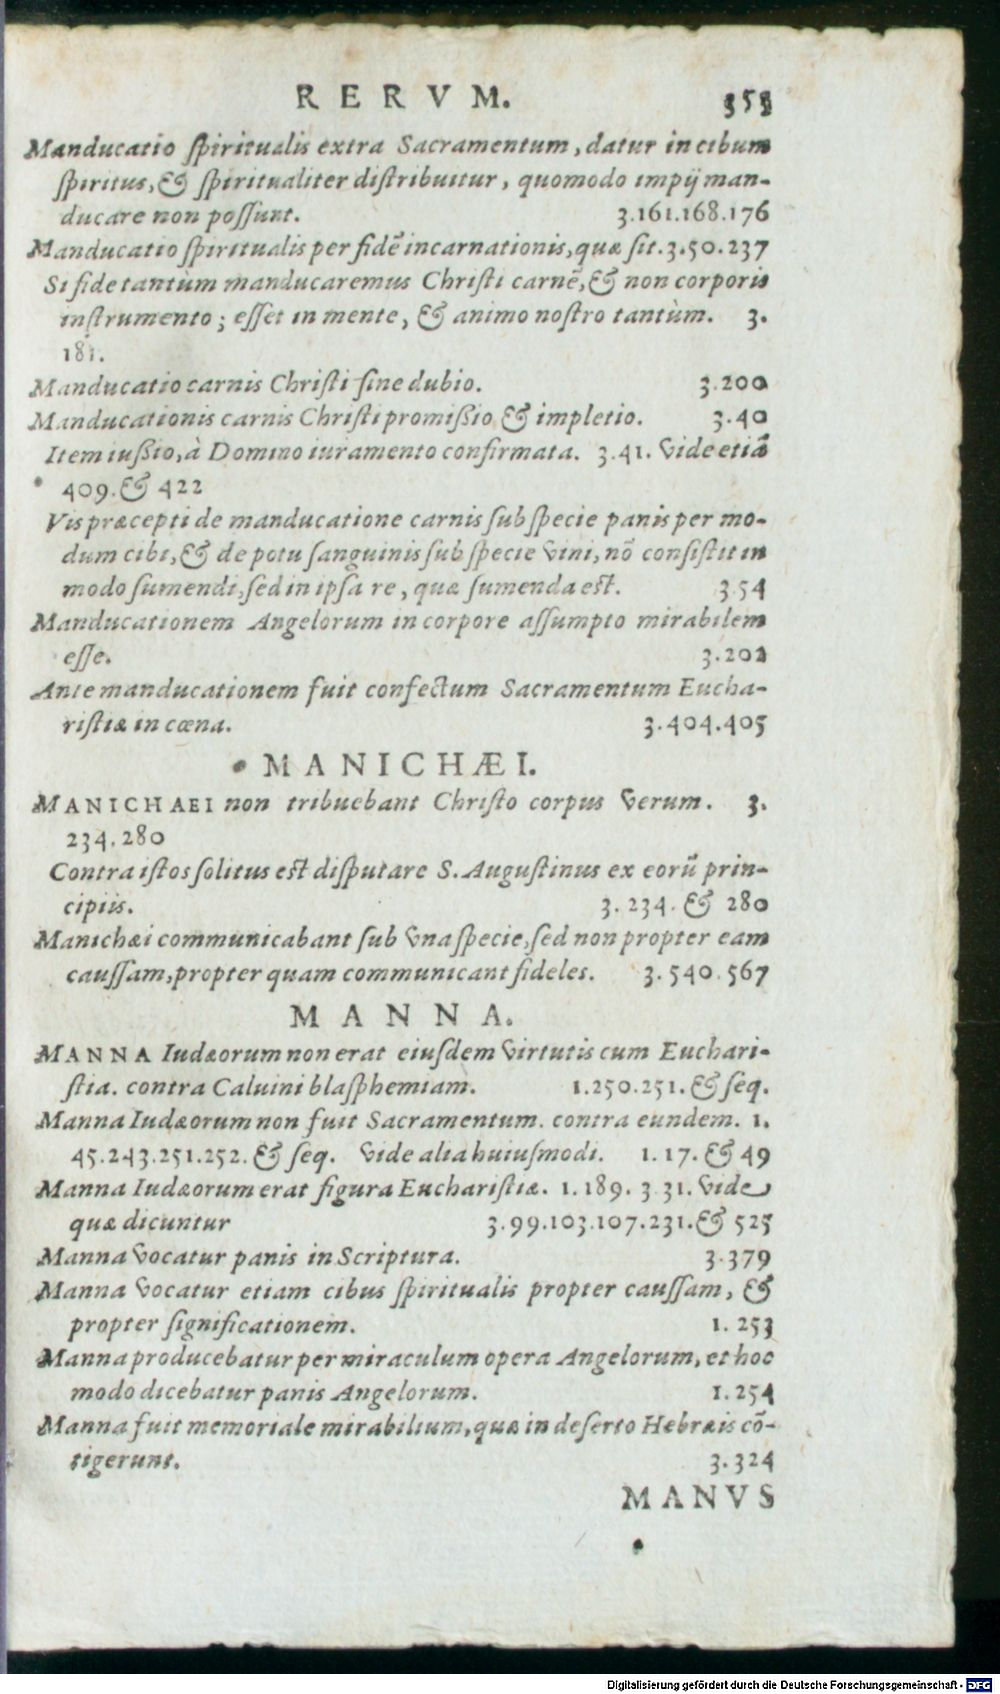 RERVM. 353
Manducatio spiritualis extra Sacramentum, datur in cibum
spiritus, & spiritualiter distribuitur, quomodo impij man-
ducare non possunt. 3.161.168.176
Manducatio spiritualis per fidẽ incarnationis, quæ sit. 3.50.237
Si fide tantùm manducaremus Christi carnẽ, & non corporis
instrumento; esset in mente, & animo nostro tantùm. 3.
181.
Manducatio carnis Christi sine dubio. 3.200
Manducationis carnis Christi promißio & impletio. 3.40
Item iußio, à Domino iuramento confirmata. 3.41. Vide etiã
409. & 422
Vis præcepti de manducatione carnis sub specie panis per mo-
dum cibi, & de potu sanguinis sub specie vini, nõ consistit in
modo sumendi, sed in ipsa re, quæ sumenda est. 3.54
Manducationem Angelorum in corpore assumpto mirabilem
esse. 3.202
Ante manducationem fuit confectum Sacramentum Eucha-
ristiæ in cœna. 3.404.405
MANICHÆI.
MANICHAEI non tribuebant Christo corpus verum. 3.
234.280
Contra istos solitus est disputare S. Augustinus ex eorũ prin-
cipiis. 3. 234. & 280
Manichæi communicabant sub vna specie, sed non propter eam
caussam, propter quam communicant fideles. 3.540.567
MANNA.
MANNA Iudæorum non erat eiusdem virtutis cum Euchari-
stia. contra Caluini blasphemiam. 1.250.251. & seq.
Manna Iudæorum non fuit Sacramentum. contra eundem. 1.
45.243.251.252. & seq. Vide alia huiusmodi. 1. 17. & 49
Manna Iudæorum erat figura Eucharistiæ. 1. 189. 3 31. Vide
quæ dicuntur 3.99.103.107.231. & 525
Manna vocatur panis in Scriptura. 3.379
Manna vocatur etiam cibus spiritualis propter caussam, &
propter significationem. 1. 253
Manna producebatur per miraculum opera Angelorum, et hoc
modo dicebatur panis Angelorum. 1.254
Manna fuit memoriale mirabilium, quæ in deserto Hebræis cõ-
tigerunt. 3.324
MANVS
Digitalisierung gefördert durch die Deutsche Forschungsgemeinschaft - DFG